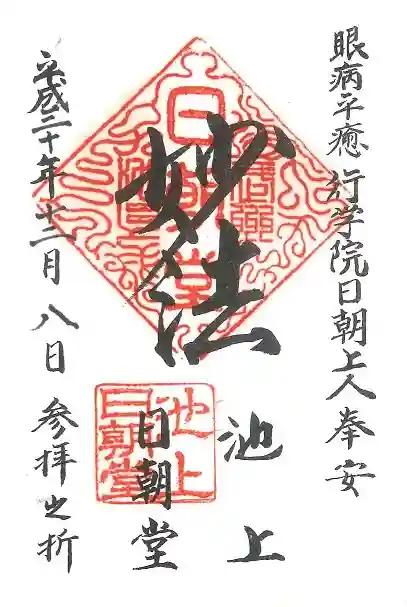 眼病平癒 行学院日朝上人奉安
妙法
池上
日朝堂
平成二十年十二月八日 参拝之折
日朝堂
池上
日朝堂